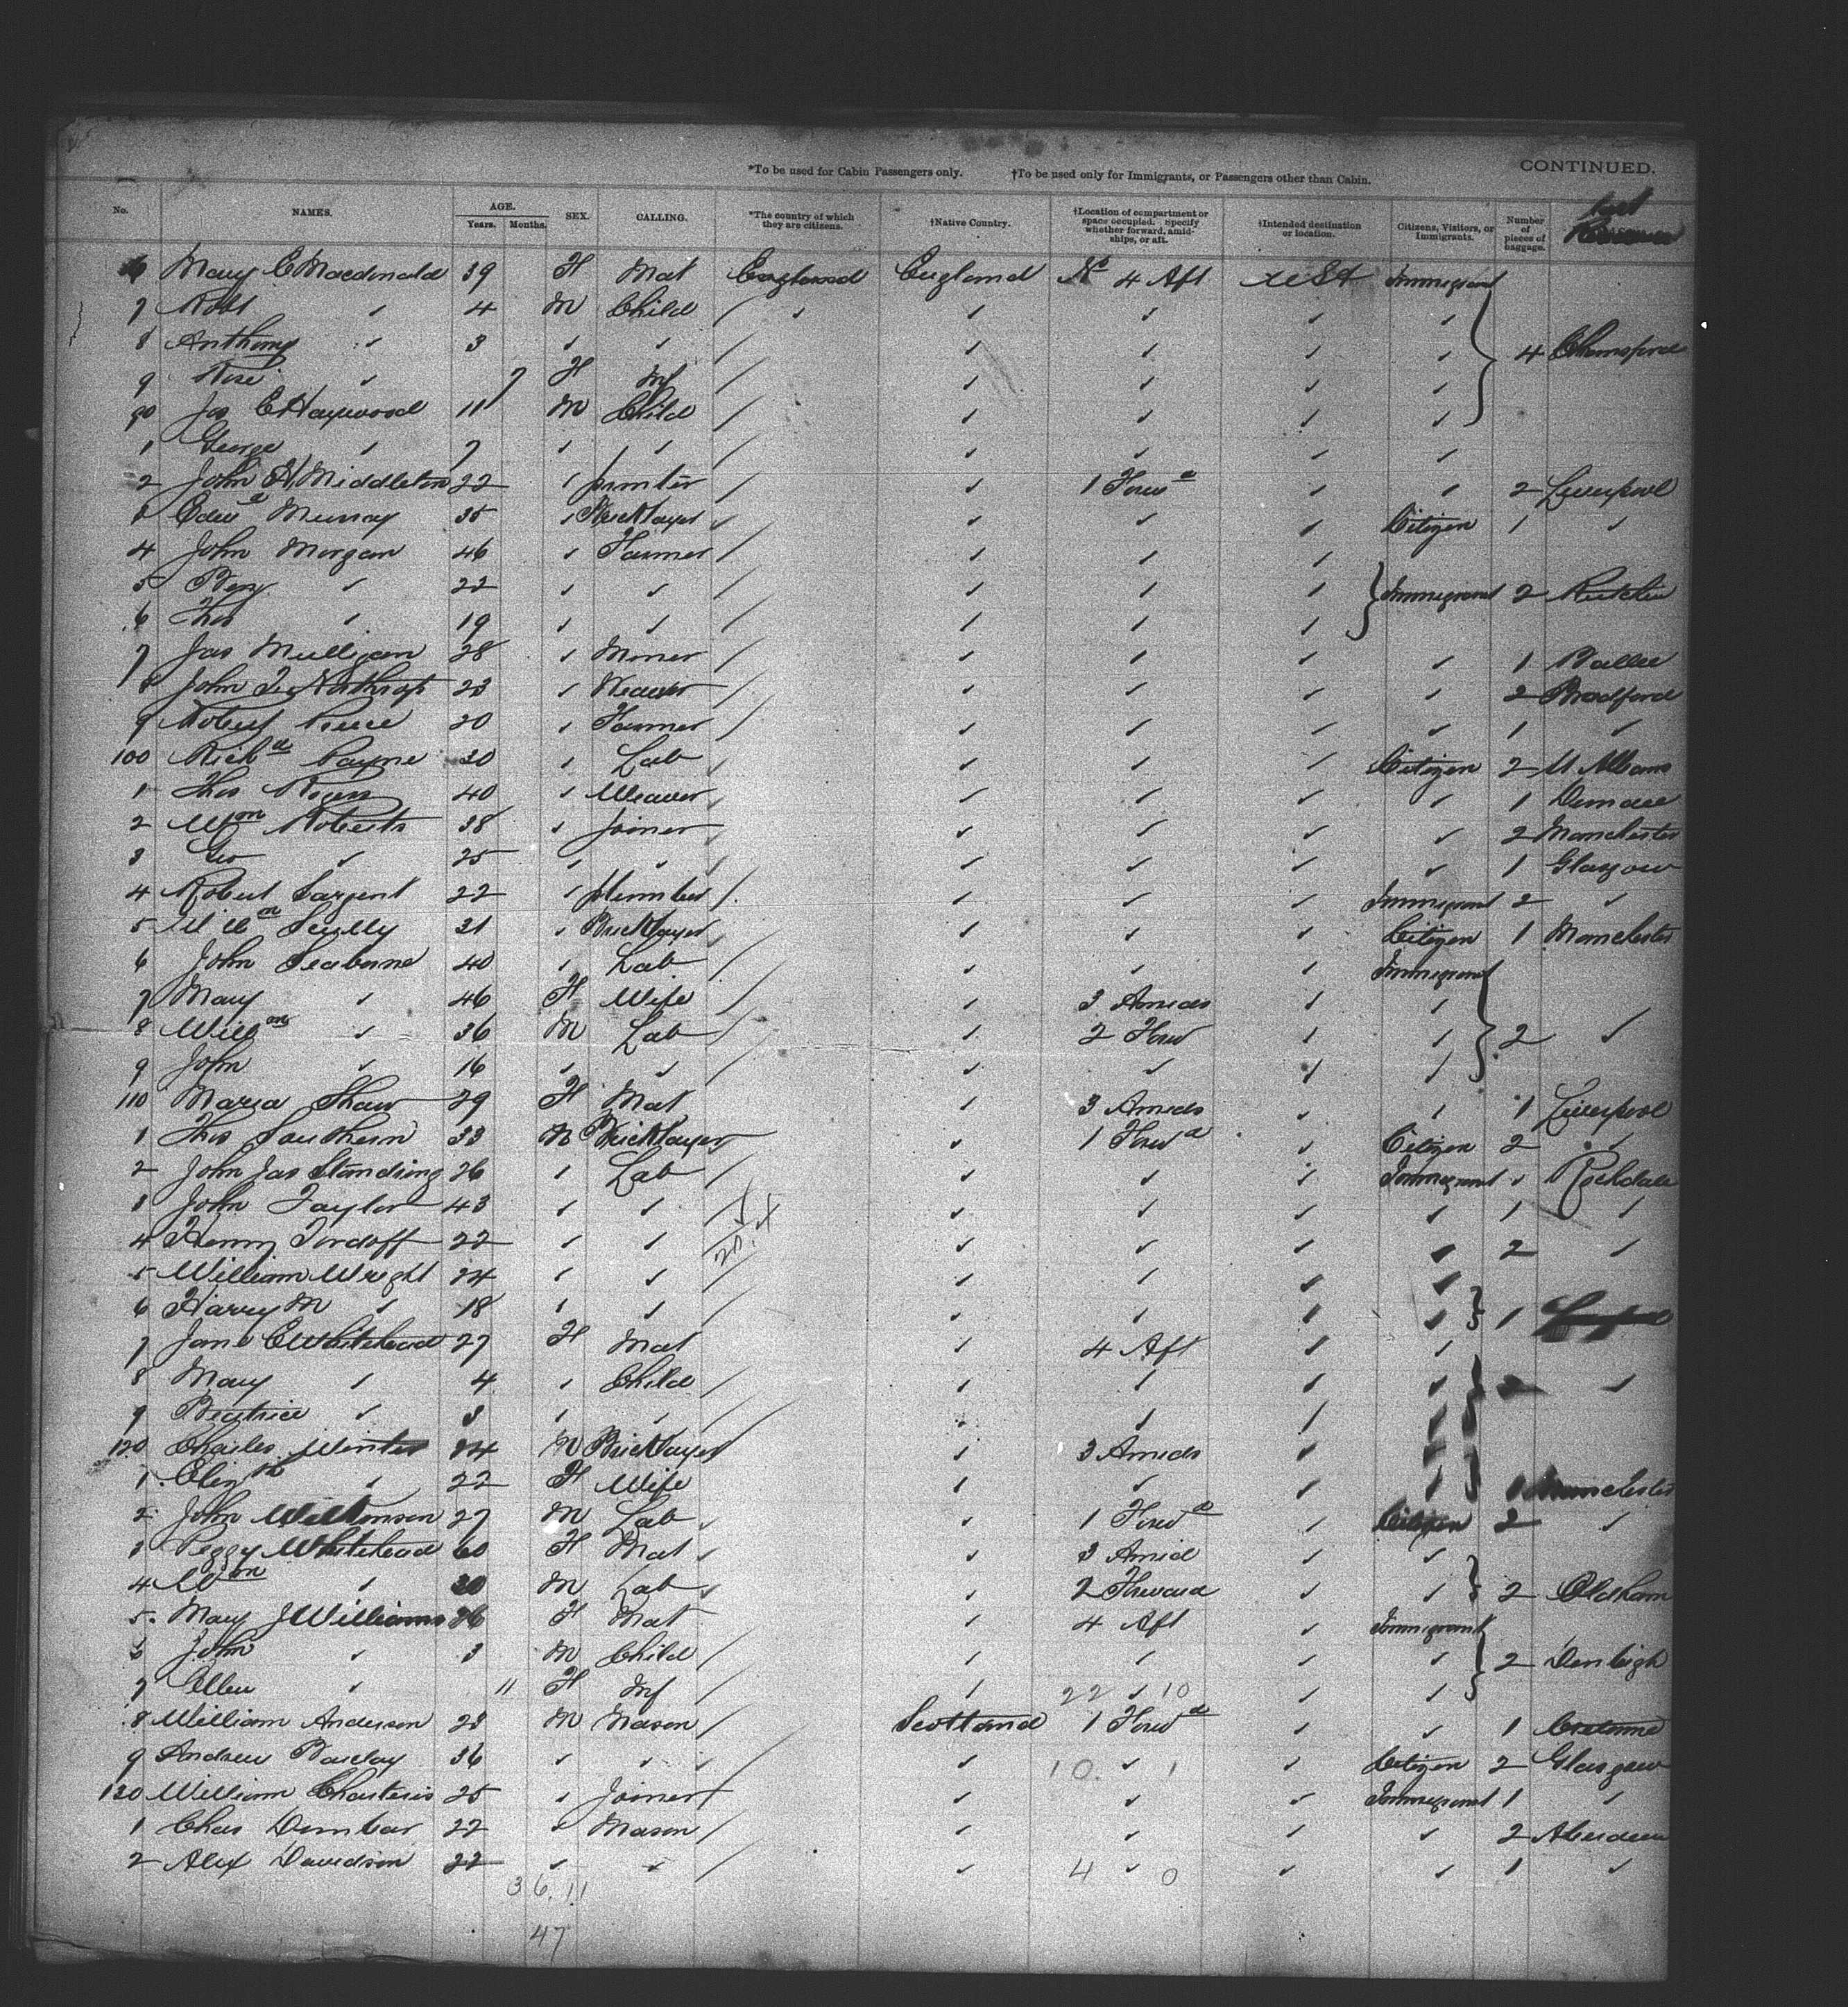 *To be used for Cabin Passengers only. †To be used only for Immigrants, or Passengers other than Cabin. CONTINUED.
No. NAMES. AGE. Years. Months. SEX. CALLING. *The country of which they are citizens. †Native Country. †Location of compartment or space occupied. Specify whether forward, amidships, or aft. †Intended destination or location. Citizens, Visitors, or Immigrants. Number of pieces of baggage. last
6 Mary C Macdonald 39 F Mat England England No 4 Aft U St Immigrant
7 Robt " 4 M Child / " " " " "
8 Anthony " 3 " " / " " " " 4 Chemsford
9 Rose " 7 F Inf / " " " "
90 Jas C Haywood 11 M Child / " " " "
1 George " 7 " " / " " " "
2 John H Middleton 22 " printer " 1 Forwd " " 2 Liverpool
3 Edwd Murray 35 " Bricklayer " " " Citizen 1 "
4 John Morgan 46 " Farmer / " " "
5 Benj " 22 " " / " " " Immigrant 2
6 Thos " 19 " " / " " "
7 Jas Mulligan 28 " Miner / " " " " 1
8 John T Northrop 23 " Weaver / " " " " 2 Bradford
9 Robert 20 " Farmer / " " " " 1 "
100 Richd Payne 30 " Lab " " " Citizen 2 St Albans
1 Thos Rogers 40 " Weaver " " " " 1 Dundee
2 Wm Roberts 38 " Joiner " " " " 2 Manchester
3 Geo " 25 " " " " " " 1 Glasgow
4 Robert Sargent 22 " plumber / " " " Immigrant 2 "
5 Willm Scully 31 " Bricklayer " " " Citizen 1 Manchester
6 John Seaborne 40 " Lab / " " " Immigrant
7 Mary " 46 F Wife / " 3 Amids " "
8 Willm " 36 M Lab / " 2 Forw " " 2 "
9 John " 16 " " / " " " "
110 Maria Shaw 29 F Mat " 3 Amids " " 1 Liverpool
1 Thos Southern 33 M Bricklayer " 1 Forwd " Citizen 2 "
2 John Jas Standring 26 " Lab / " " " Immigrant " Rochdale
3 John Taylor 43 " " / " " " " 1 "
4 Henry Tordoff 22 " " " " " " 2 "
5 William Wright 24 " " / " " " "
6 Harry M " 18 " " / " " " " 1
7 Jane E Whitehead 27 F Mat " 4 Aft " "
8 Mary " 4 " Child / " " " " "
9 Beatrice " 3 " " / " " " "
120 Charles Winter 24 M Bricklayer " 3 Amids " "
1 Elizth " 22 F Wife " " " " 1 Manchester
2 John Wilkinson 27 M Lab " 1 Forwd " Citizen 2 "
3 Peggy Whitehead 60 F Mat " 3 Amid " "
4 Wm " 20 M Lab " 2 Forward " " 2 Oldham
5 Mary J Williams 26 F Mat " 4 Aft " Immigrant
6 John " 3 M Child / " " " " 2 Denbigh
7 Ellen " 11 F Inf / " 22 " 10 " "
8 William Anderson 23 M Mason / Scotland 1 Forwd " " 1
9 Andrew Barclay 36 " " " " 10 " 1 " Citizen 2 Glasgow
130 William Charteris 25 " Joiner " " " Immigrant 1 "
1 Chas Dunbar 22 " Mason / " " " " 2 Aberdeen
2 Alex Davidson 22 " " / " 4 " 0 " " 1 "
36.11
47